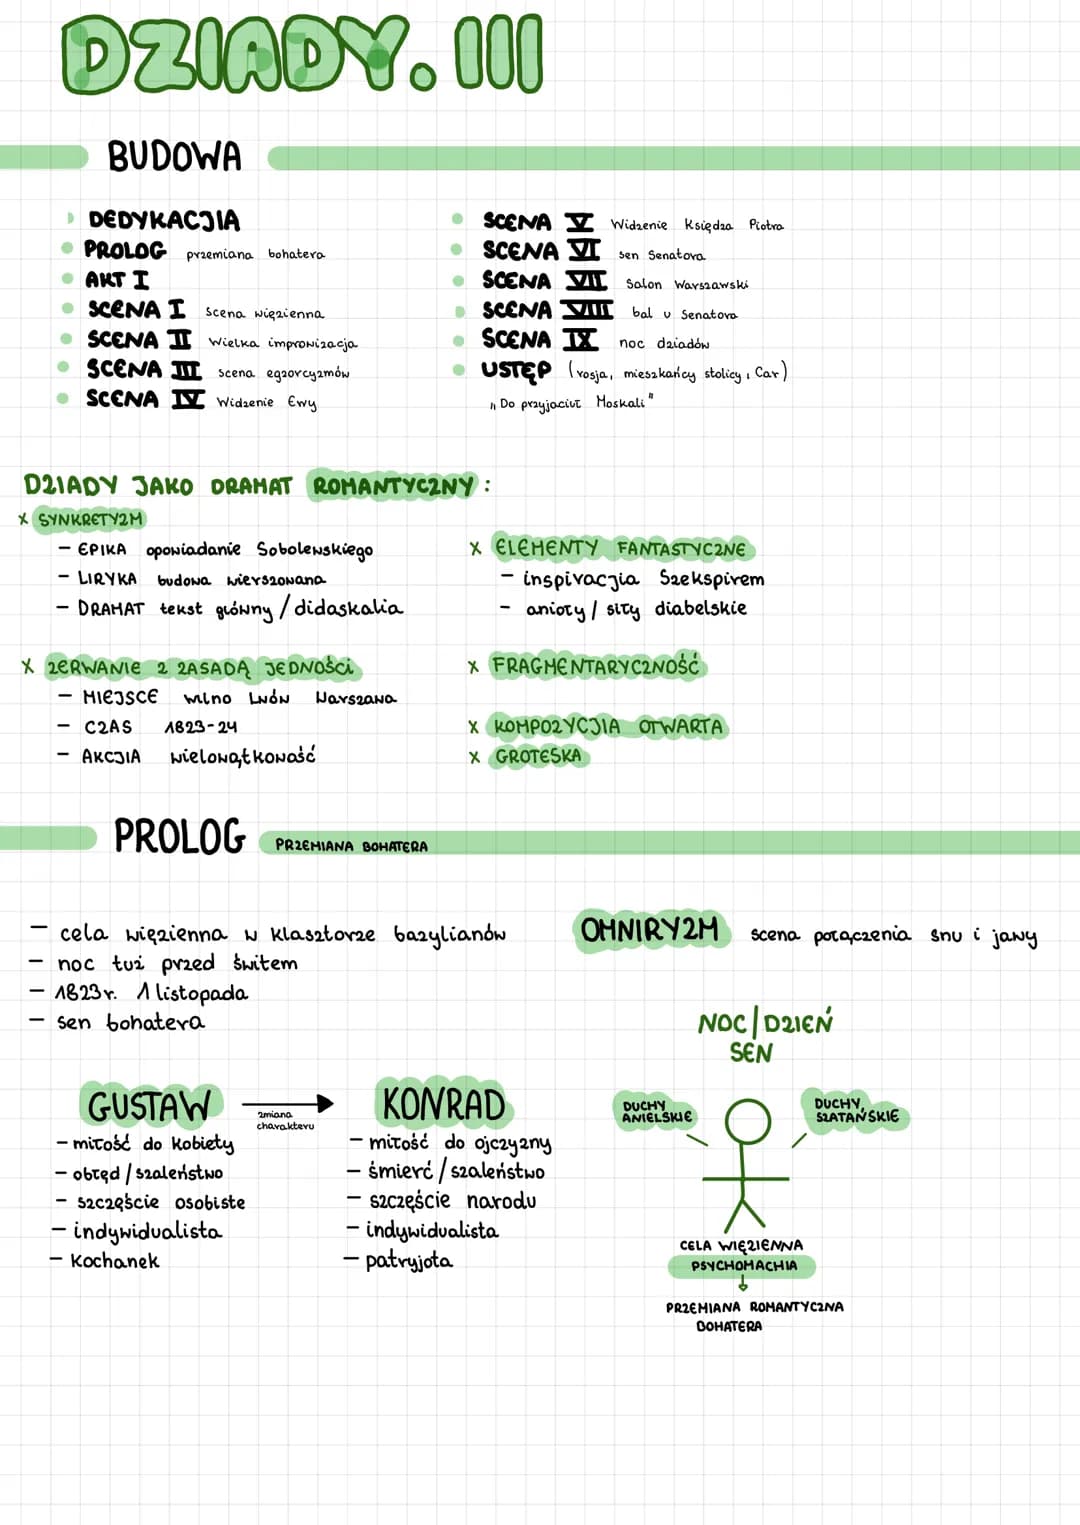 DZIADY. III
BUDOWA
DEDYKACJIA
PROLOG przemiana bohatera
AKT I
SCENA I Scena więzienna
SCENA II Wielka improwizacja
SCENA III scena egzorcyzmów
SCENA IV Widzenie Ewy
SCENA V Widzenie Księdza Piotra
SCENA VI sen Senatora
SCENA VII Salon Warszawski
SCENA VIII bal u Senatora
SCENA IX noc dziadów
USTĘP (rosja, mieszkańcy stolicy, Car)
"Do przyjaciuł Moskali"
DZIADY JAKO DRAMAT ROMANTYCZNY:
x SYNKRETYZM
- EPIKA opowiadanie Sobolewskiego
- LIRYKA budowa wierszowana
- DRAMAT tekst główny / didaskalia
x ZERWANIE Z ZASADĄ JEDNOŚCI
- MIEJSCE wilno Lwów Warszawa
- CZAS 1823-24
- AKCJIA wielowątkowość
x ELEMENTY FANTASTYCZNE
- inspiracjia Szekspirem
- anioły / siły diabelskie
x FRAGMENTARYCZNOŚĆ
x KOMPOZYCJIA OTWARTA
x GROTESKA
PROLOG PRZEMIANA BOHATERA
- cela więzienna w klasztorze bazylianów
- noc tuż przed świtem
- 1823r. 1 listopada
- sen bohatera
OMNIRYZM scena połączenia snu i jawy
GUSTAW
- miłość do kobiety
- obłęd / szaleństwo
- szczęście osobiste
- indywidualista
- Kochanek
zmiana
charakteru
KONRAD
- miłość do ojczyzny
- śmierć / szaleństwo
- szczęście narodu
- indywidualista
- patryjota
NOC / DZIEŃ
SEN
DUCHY
ANIELSKIE
DUCHY
SZATAŃSKIE
CELA WIĘZIENNA
PSYCHOMACHIA
PRZEMIANA ROMANTYCZNA
BOHATERA